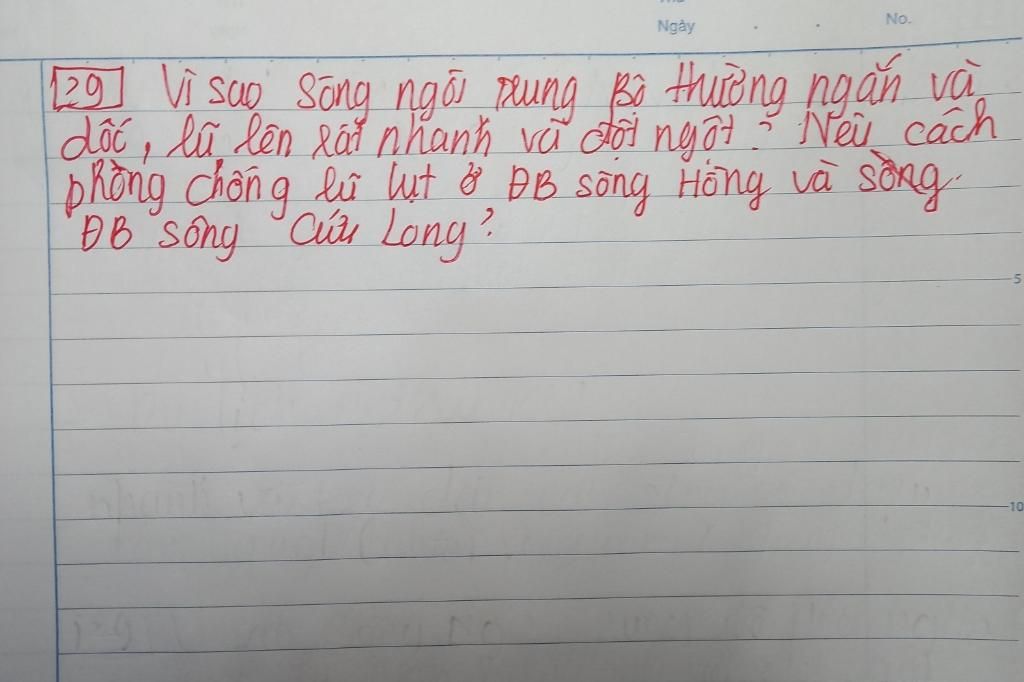 Ngày . . No.
29 Vì sao sông ngòi Trung Bộ thường ngắn và
dốc, lũ lên rất nhanh và đột ngột? Nêu cách
phòng chống lũ lụt ở ĐB sông Hồng và sông
ĐB sông Cửu Long?
5
10